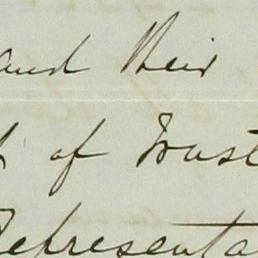 and their
of Trust
Representa